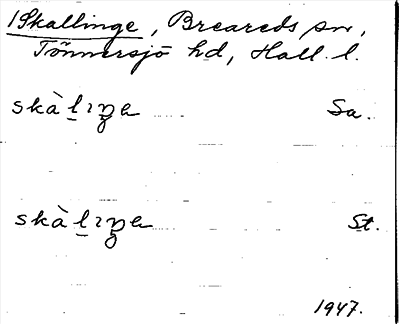 1 Skallinge, Breareds sn,
Tönnersjö hd, Hall. l.
skàl̲ıŋe Sa.
skàl̲ıŋe St.
1947.